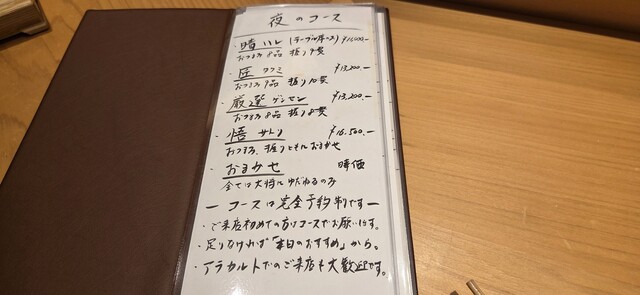 夜のコース
・晴 ハレ (テーブル席のみ) ¥11,000-
おつまみ8品 握り9貫
・匠 タクミ ¥13,200.-
おつまみ9品 握り10貫
・厳選 ゲンセン ¥13,200.-
おつまみ8品 握り8貫
・悟 サトリ ¥16,500.-
おつまみ、握りともにおまかせ
・おまかせ 時価
全ては大将にゆだねるのみ
ー コースは完全予約制です ー
・ご来店初めての方はコースでお願いします。
・足りなければ「本日のおすすめ」から。
・アラカルトでのご来店も大歓迎です。